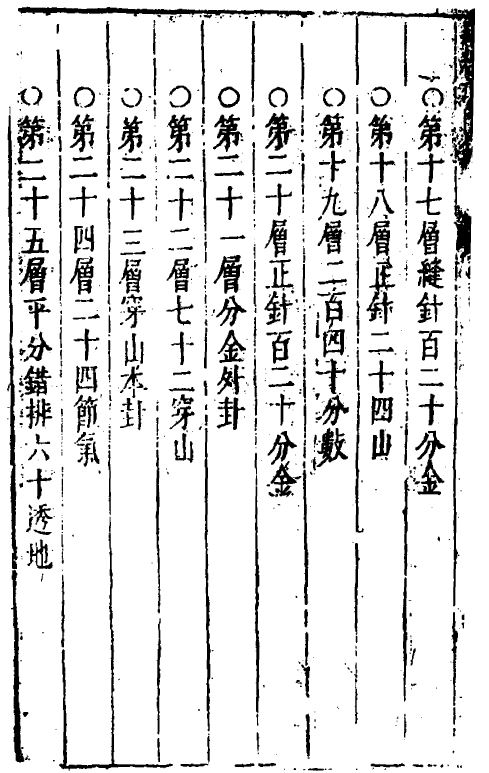 ○第十七層縫針百二十分金
○第十八層正針二十四山
○第十九層二百四十分數
○第二十層正針百二十分金
○第二十一層分金外卦
○第二十二層七十二穿山
○第二十三層穿山本卦
○第二十四層二十四節氣
○第二十五層平分錯排六十透地